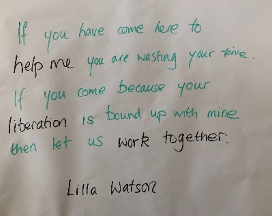 If you have come here to
help me you are wasting your time.
If you come because your
liberation is bound up with mine
then let us work together.
Lilla Watson